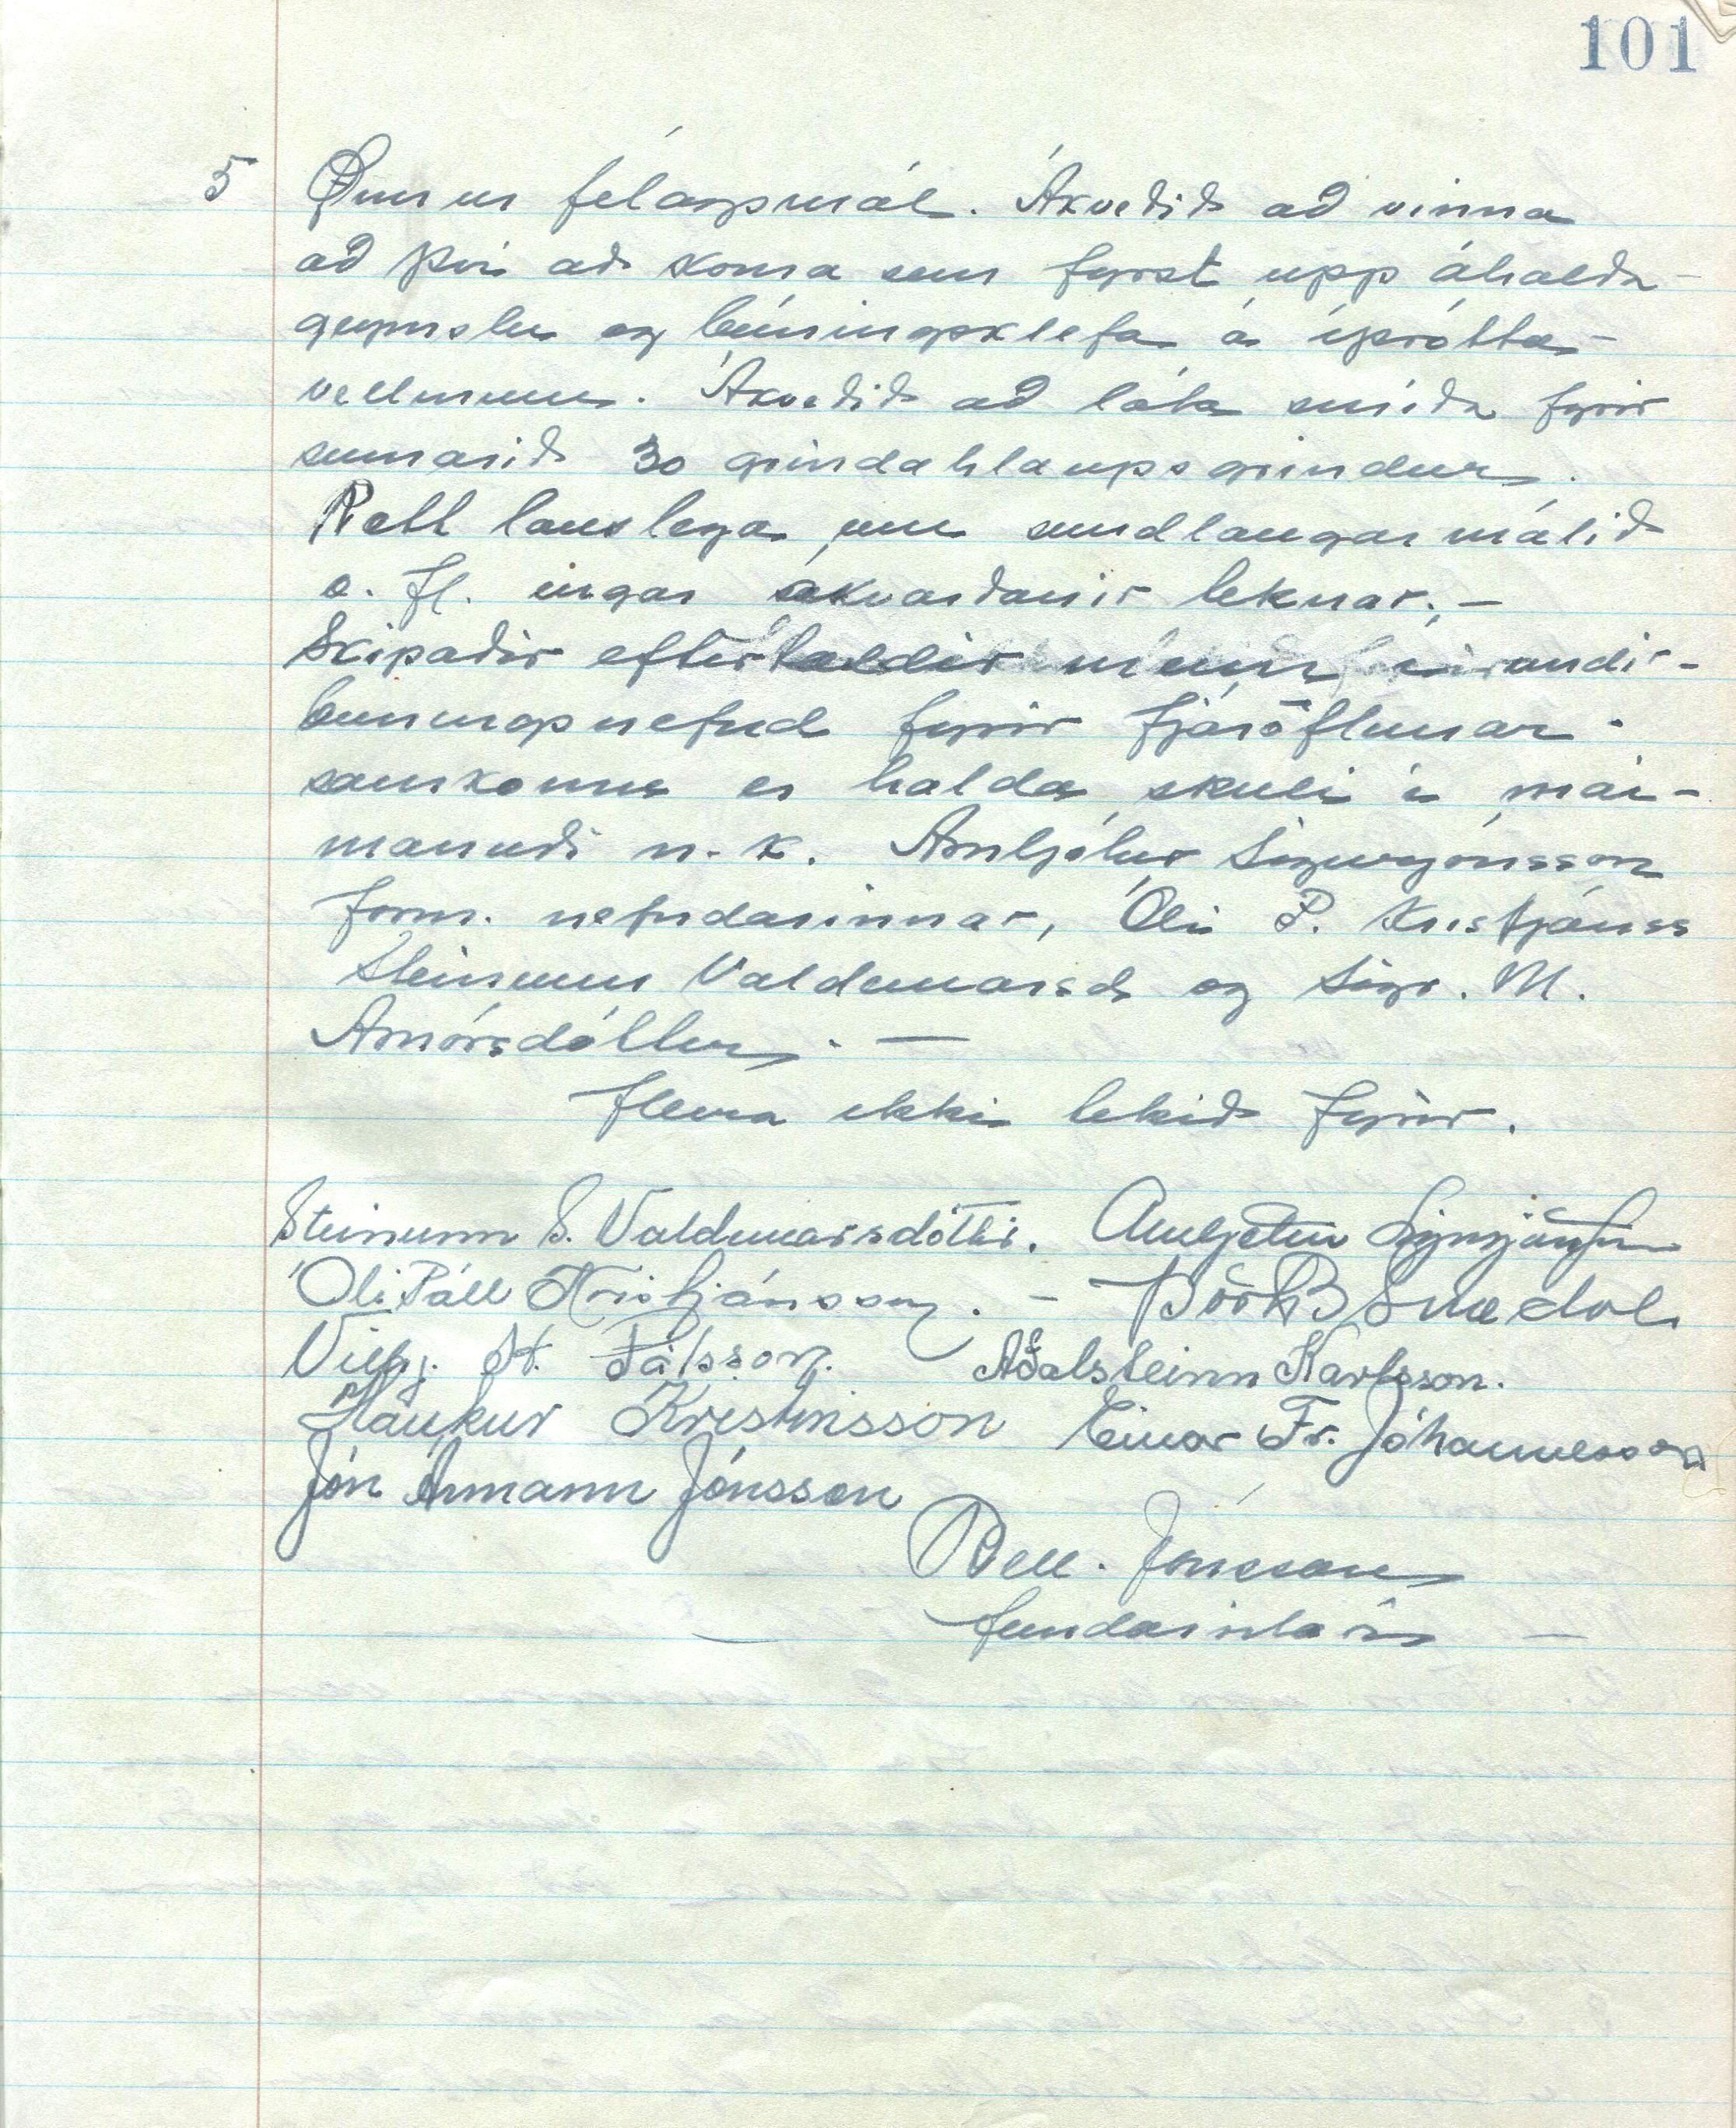 101
5 Önnur félagsmál. Ákvedið að vinna
að því að koma sem fyrst upp áhalda-
geymslu og búningsklefa á íþrótta-
vellinum. Ákvedið að láta smíða fyrir
sumarið 30 grindahlaupsgrindur.
Rætt lauslega um sundlaugarmálið
o. fl. engar ákvarðanir teknar. -
Skipaðir eftirtaldir menn í undir-
búningsnefnd fyrir fjáröflunar-
samkomu er halda skuli í maí-
mánudi n.k. Arnljótur Sigurjónsson
form. nefndarinnar, Óli P. Kristjánss
Steinunn Valdemarsd og Sigr. M.
Arnórsdóttur. -
Fleira ekki tekið fyrir.
Steinunn S. Valdemarsdóttir. Arnljótur Sigurjónsson
Óli Páll Kristjánsson. -
Vilhj. H. Pálsson. Aðalsteinn Karlsson.
Haukur Kristinsson Einar Fr. Jóhannesson
Jón Ármann Jónsson
Jónsson
fundarritari -